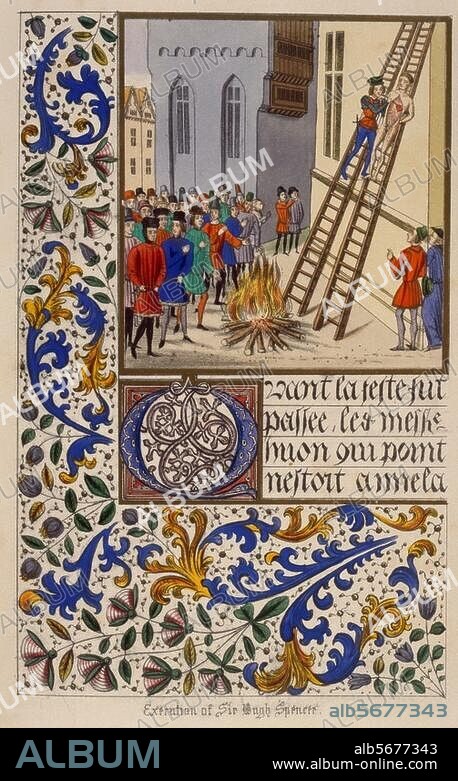 Quant la feste fut
passee, les messe
nuon qui point
nestoit a mela
Execution of Sir Hugh Spencer.
alb5677343
ALBUM
alb5677343
www.album-online.com